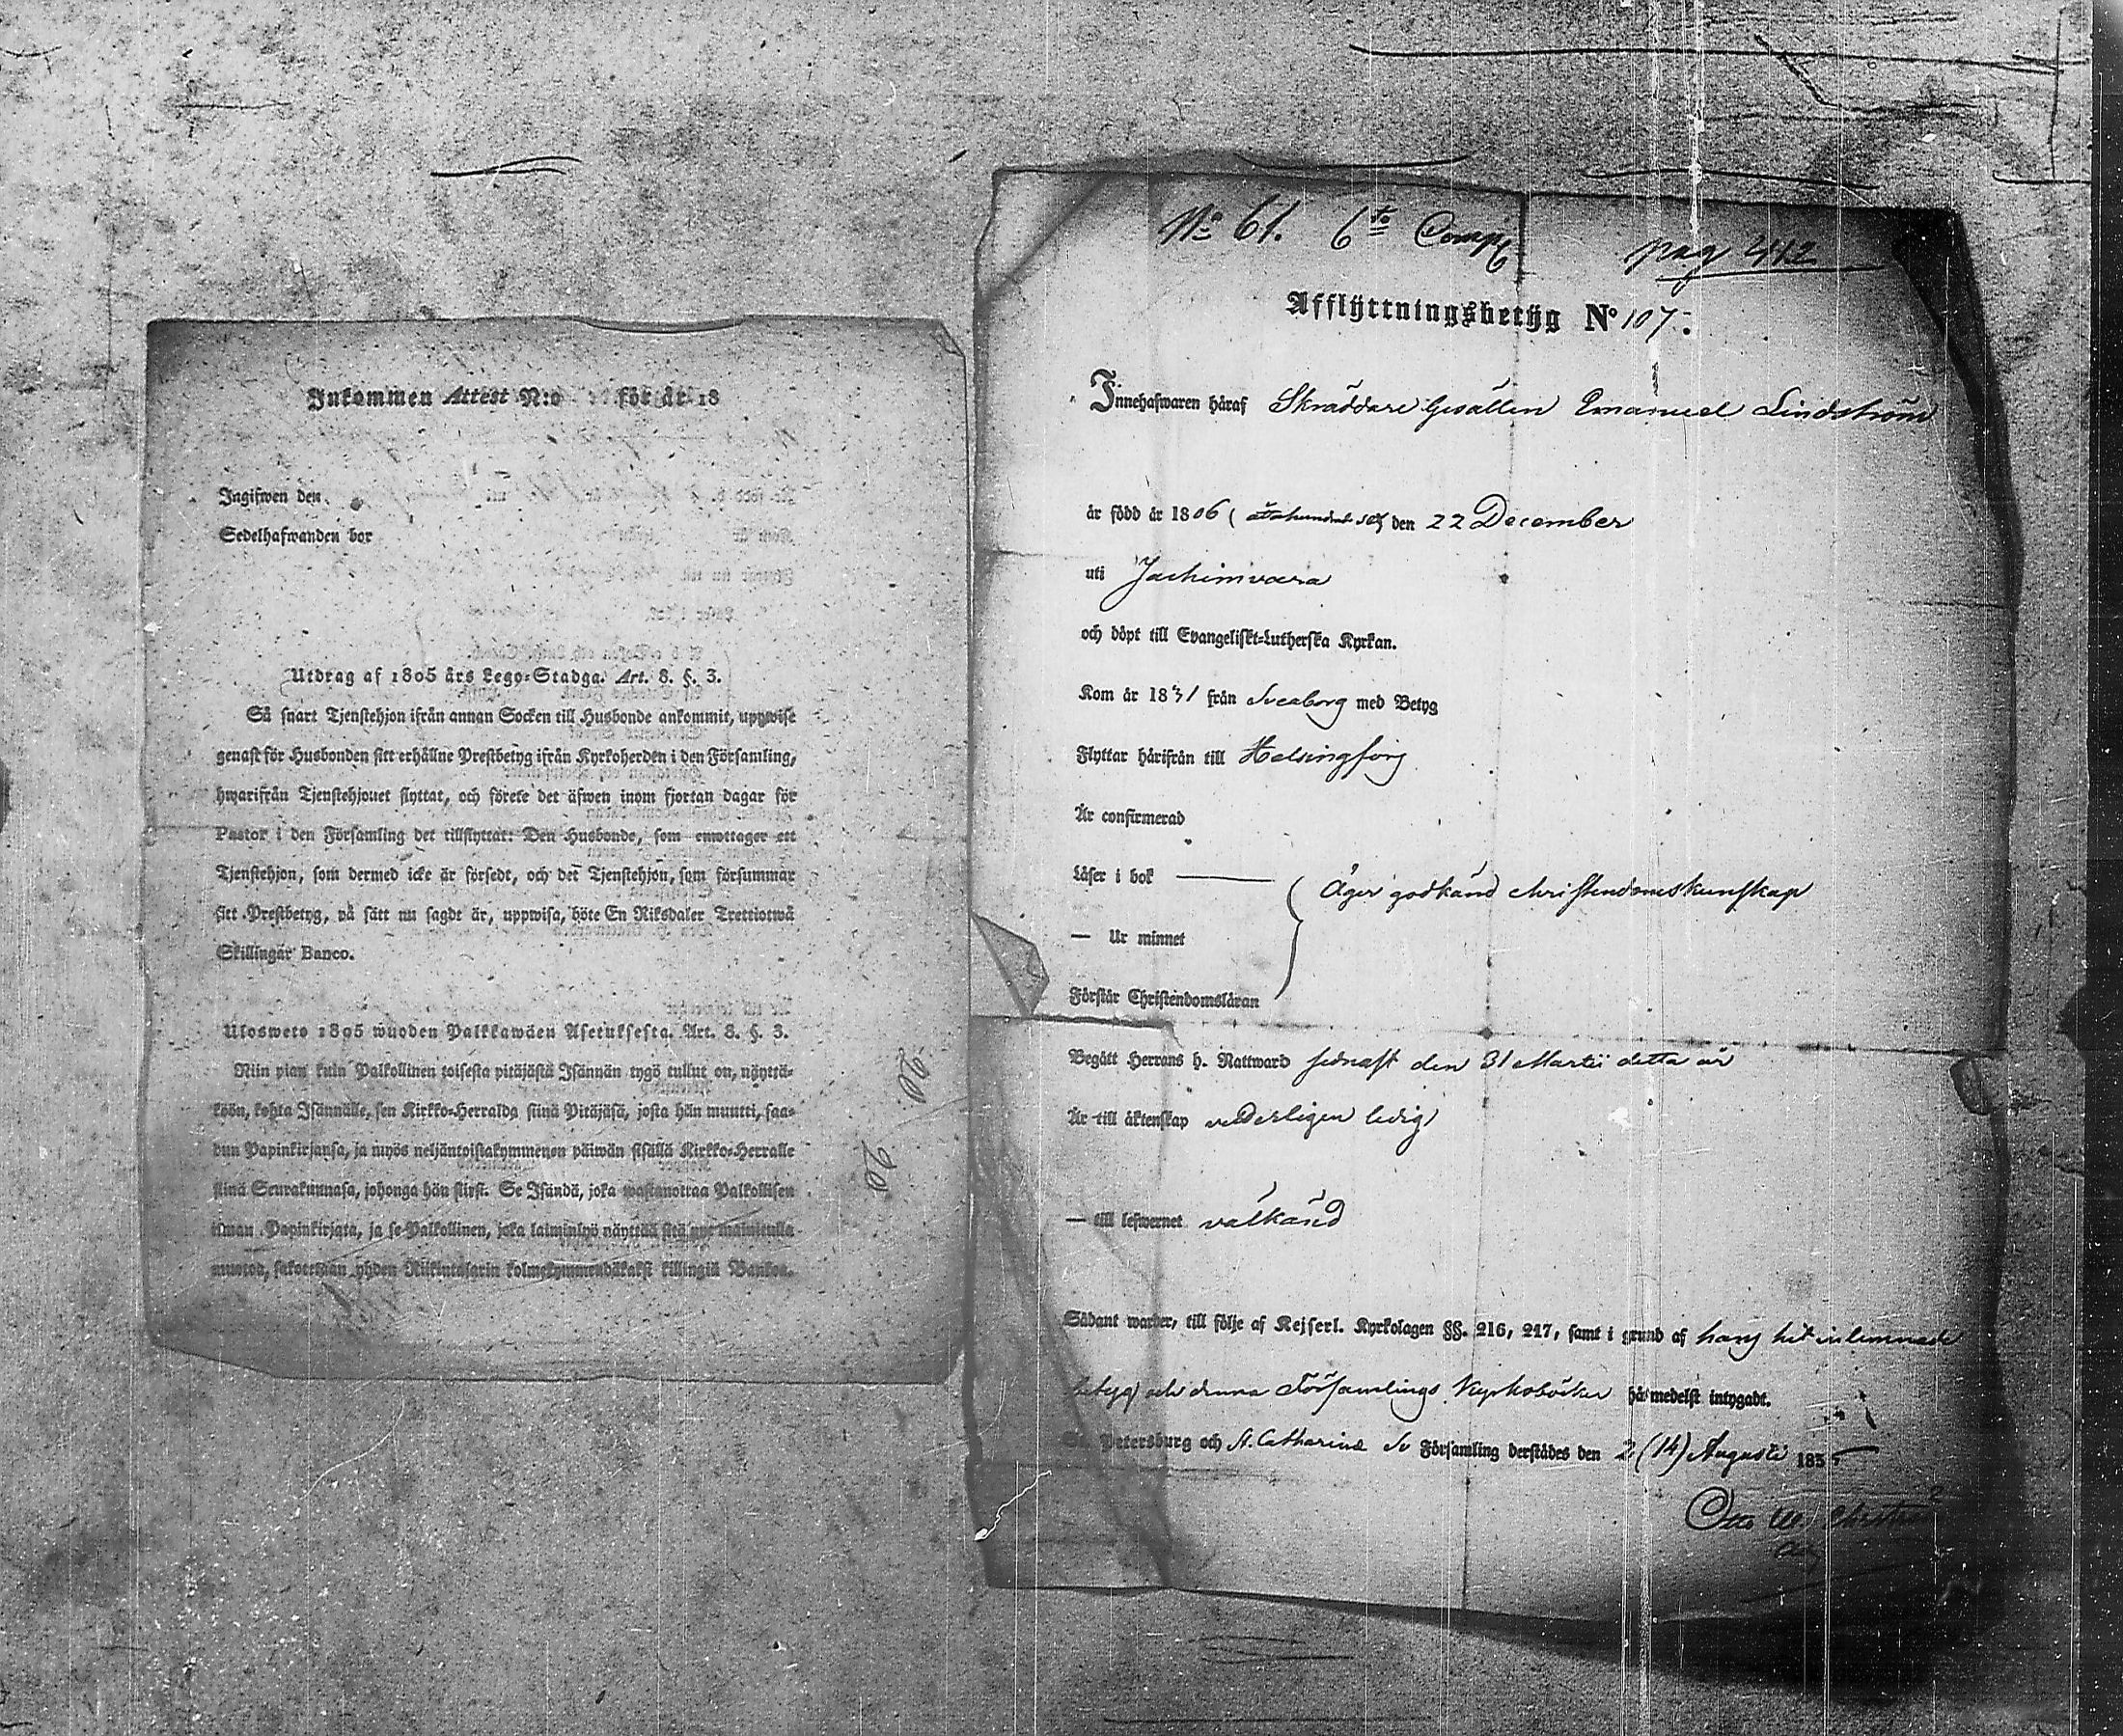 Inkommen Attest N:o för år 18
Ingifwen den
Sedelhafwanden bor
Utdrag af 1805 års Lego-Stadga. Art. 8. §. 3.
Så snart Tjenstehjon ifrån annan Socken till Husbonde ankommit, uppwise
genast för Husbonden sitt erhållne Prestbetyg ifrån Kyrkoherden i den Församling,
hwarifrån Tjenstehjonet flyttat, och förete det äfwen inom fjortan dagar för
Pastor i den Församling det tillflyttat: Den Husbonde, som emottager ett
Tjenstehjon, som dermed icke är försedt, och det Tjenstehjon, som försummar
sitt Prestbetyg, på sätt nu sagdt är, uppwisa, böte En Riksdaler Trettiotwå
Skillingar Banco.
Ulosweto 1805 wuoden Palkkawäen Asetuksesta. Art. 8. §. 3.
Niin pian kuin Palkollinen toisesta pitäjästä Isännän tygö tullut on, näyttä-
köön, kohta Isännälle, sen Kirkko-Herralda siinä Pitäjäsä, josta hän muutti, saa-
dun Papinkirjansa, ja myös neljäntoistakymmenen päiwän sisällä Kirkko-Herralle
siinä Seurakunnasa, johonga hän siirsi. Se Isändä, joka wastanottaa Palkollisen
ilman Papinkirjata, ja se Palkollinen, joka laiminlyö näyttää sitä nyt mainitulla
muotoa, sakotetaan yhden Riikintalarin kolmekymmendäkaksi killingiä Bankoa.
20
20
No 61. 6te Comp
pag 412
Afflyttningsbetyg No 107.
Innehafwaren häraf Skräddare Gesällen Emanuel Lindström
är född år 1806 (Ottahundrade sex) den 22 December
uti Jackimvara
och döpt till Evangeliskt-Lutherska Kyrkan.
Kom år 1831 från Sveaborg med Betyg
Flyttar härifrån till Helsingfors
Är confirmerad
Läser i bok
— Ur minnet
Äger godkänd christendomskunskap
Förstår Christendomsläran
Begått Herrans h. Nattward sednast den 31 Martii detta år
Är till äktenskap vederligen ledig
— till lefwernet välkänd
Sådant warder, till följe af Kejserl. Kyrkolagen §§. 216, 217, samt i grund af hans hit inlemnade
betyg och denna Församlings Kyrkoböcker härmedelst intygadt.
St. Petersburg och St. Catharina Sv Församling derstädes den 2 (14) Augusti 1835
Otto W.